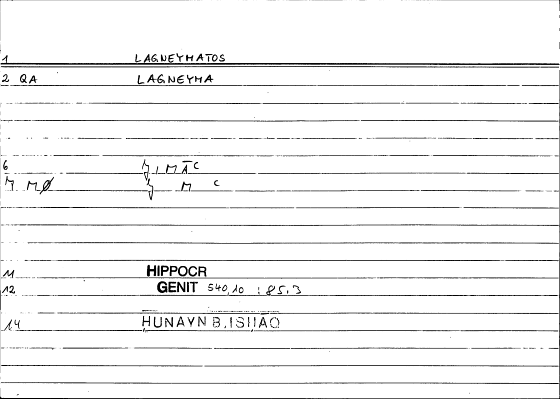 1 LAGNEYMATOS
2 QA LAGNEYMA
6
11 HIPPOCR
12 GENIT 540,10 : 85.3
14 HUNAYN B. ISHAQ